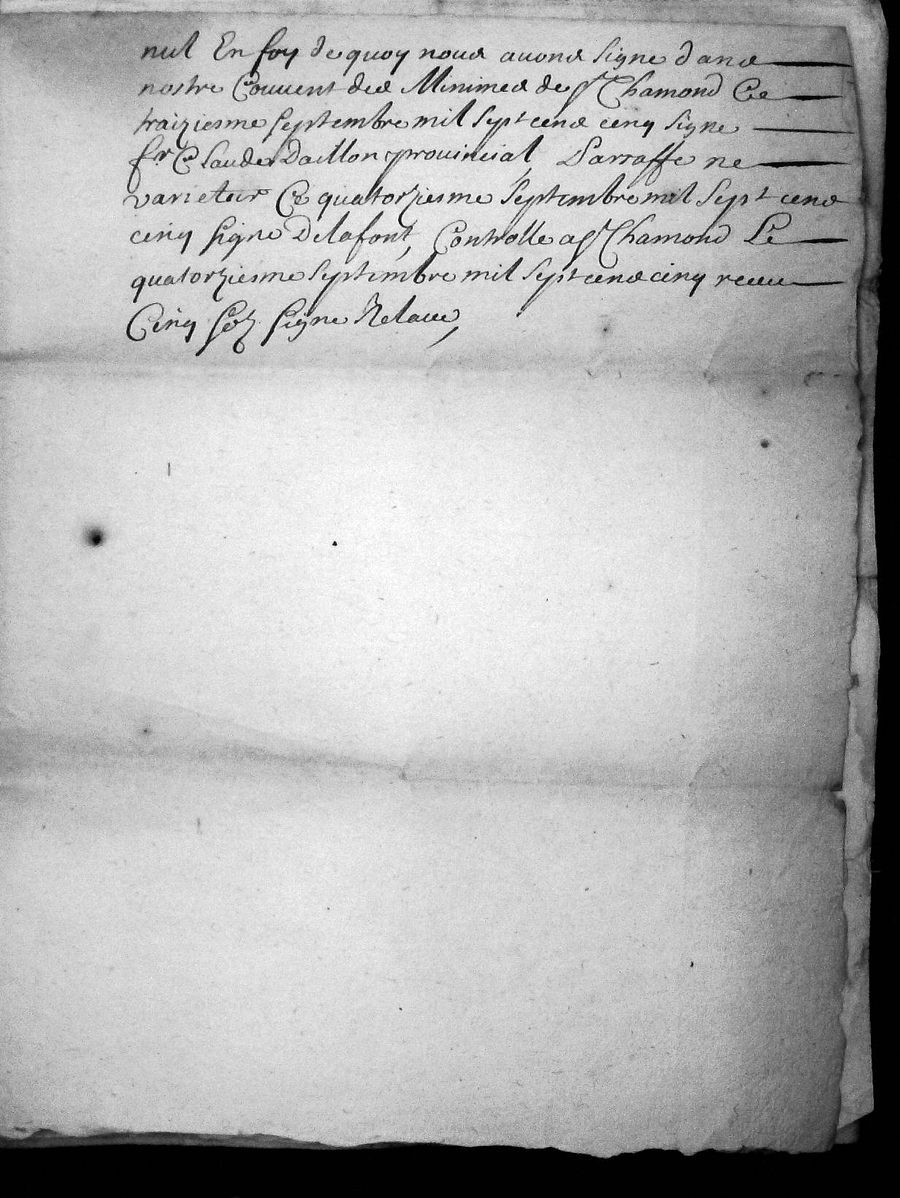 nul En foy de quoy nous avons signe dans
nostre Couvent des Minimes de St Chamond Ce
traiziesme septembre mil sept cens cinq signe
fr Claude Daillon provincial, Parraffe ne
varietur Ce quatorziesme septembre mil sept cens
cinq signe Delafont, Controlle a St Chamond Le
quatorziesme septembre mil sept cens cinq receu
Cinq solz signe